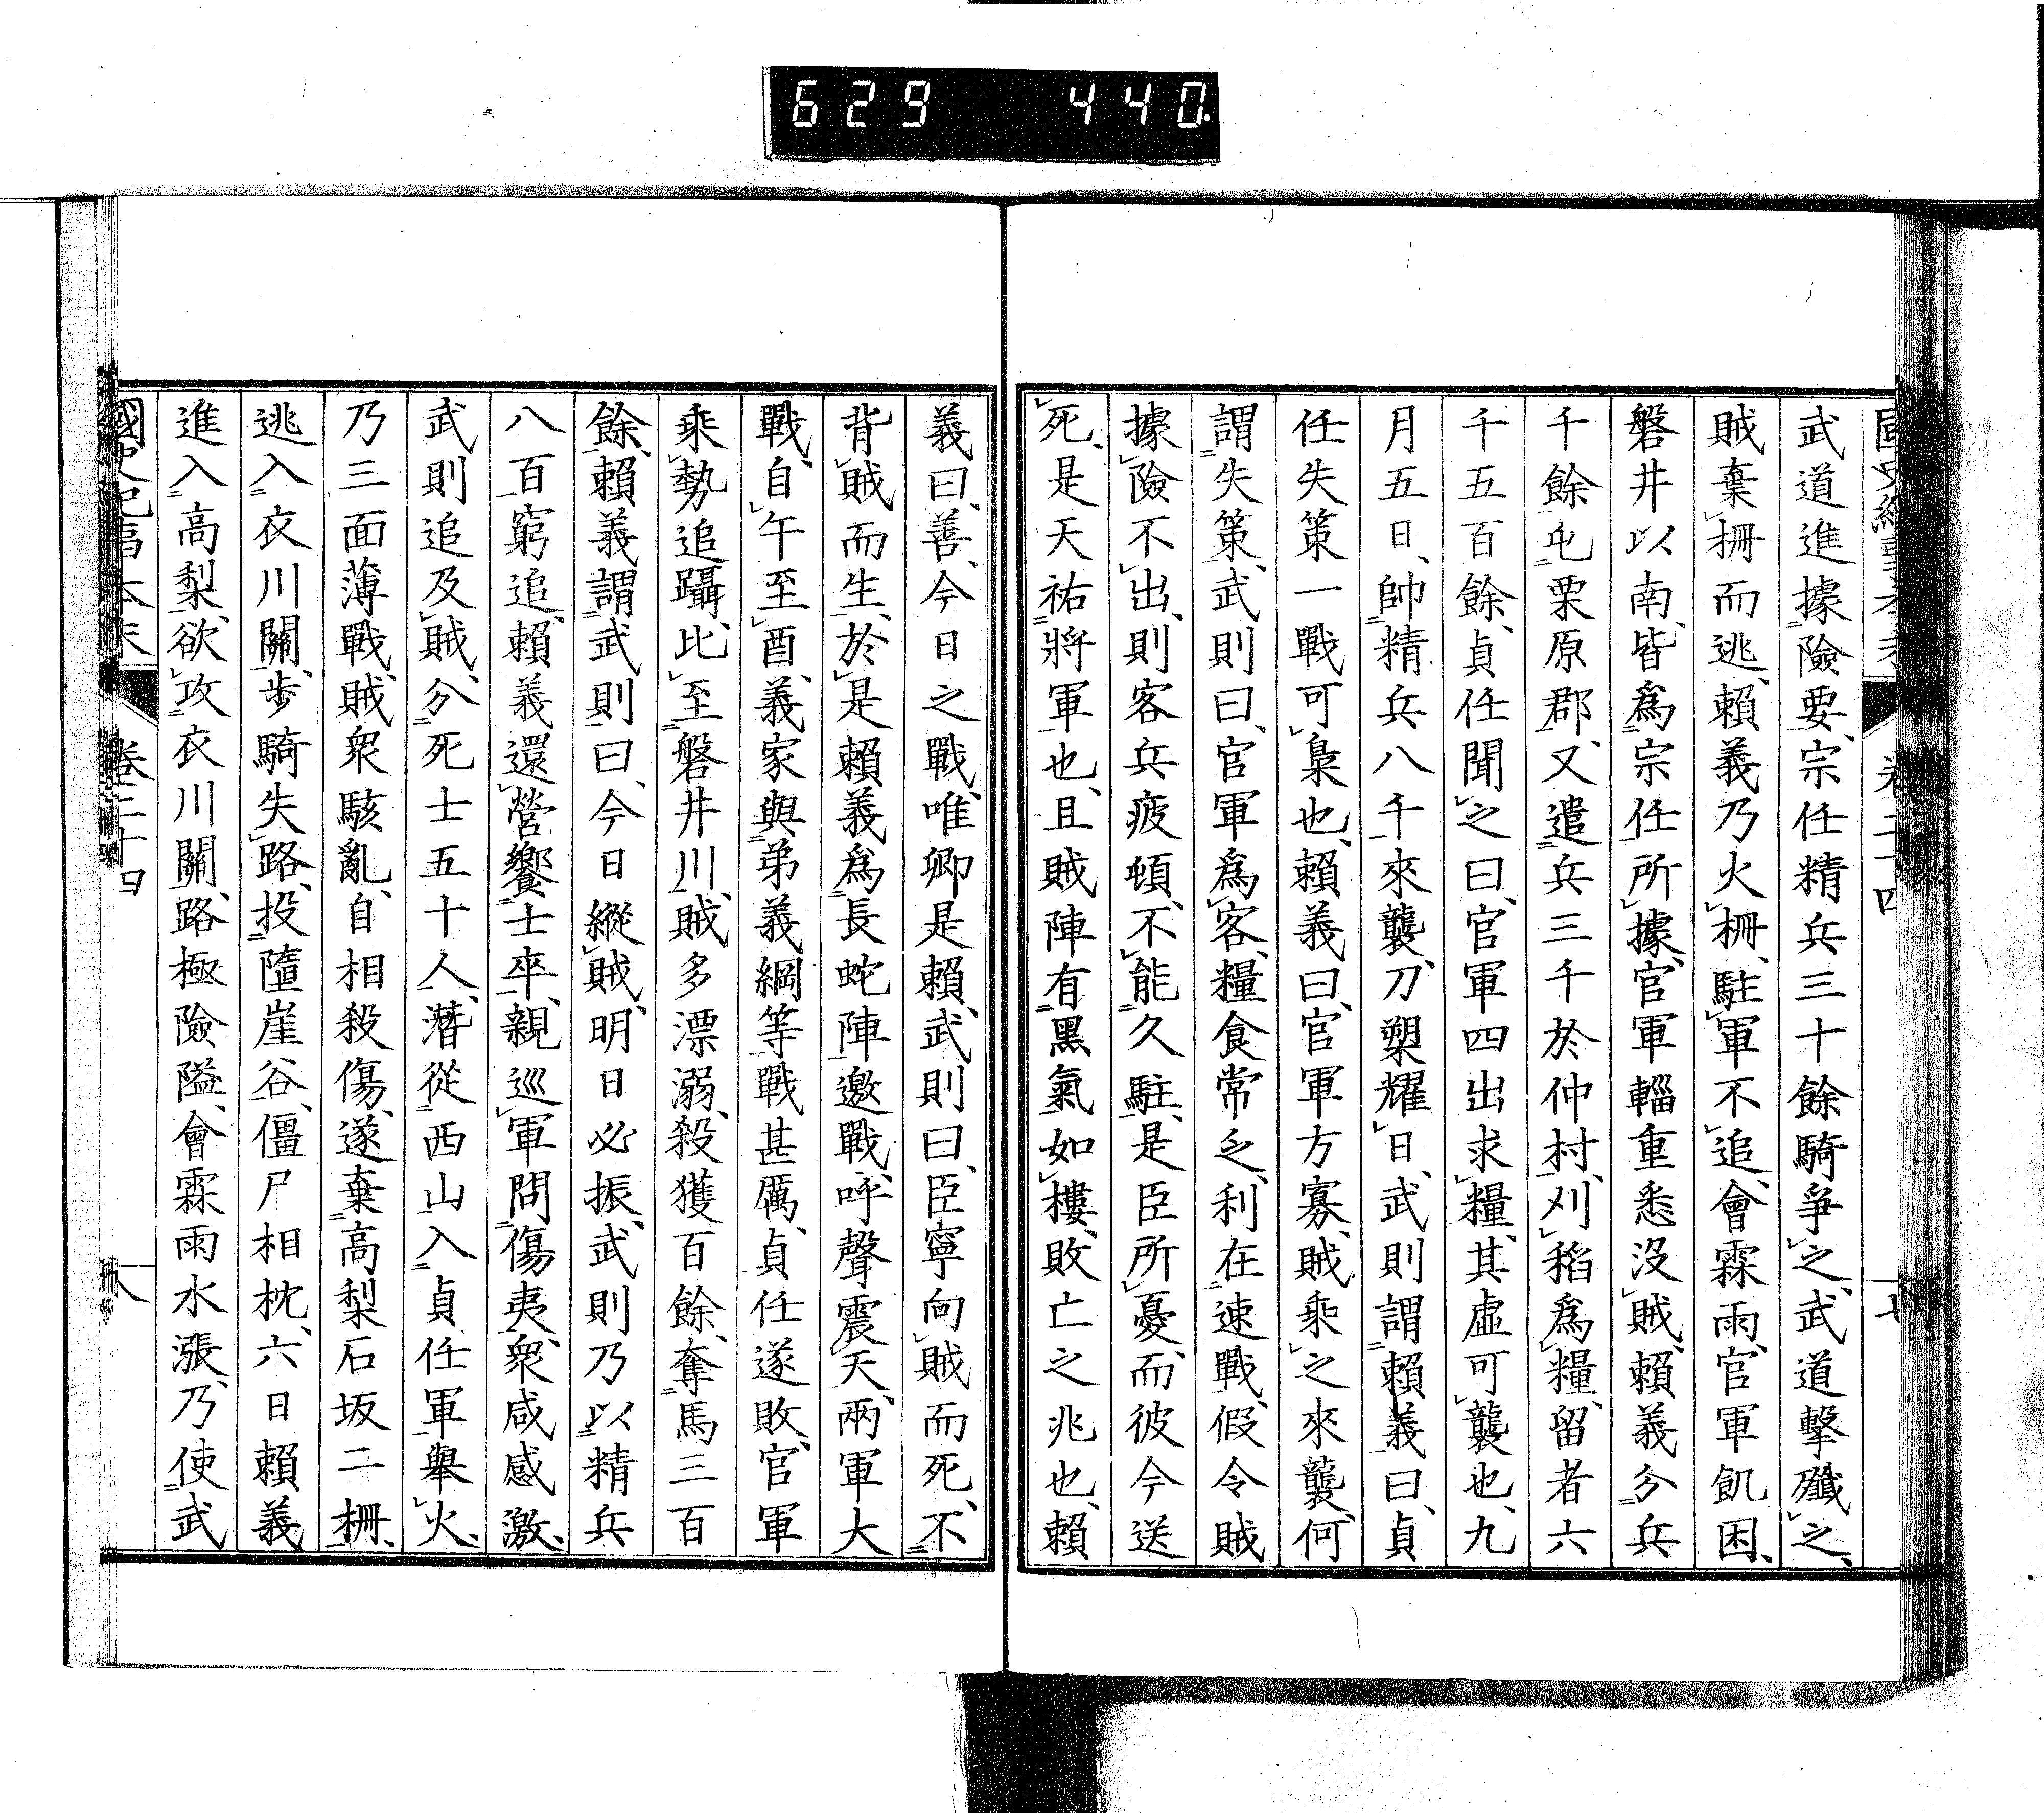 629 440
武道進據險要、宗任精兵三十餘騎爭之、武道擊殲之、
賊棄柵而逃、賴義乃火柵、駐軍不追、會霖雨、官軍飢困、
磐井以南、皆爲宗任所據、官軍輜重悉沒賊、賴義分兵
千餘屯栗原郡、又遣兵三千於仲村、刈稻爲糧、留者六
千五百餘、貞任聞之曰、官軍四出求糧、其虛可襲也、九
月五日、帥精兵八千來襲、刀槊耀日、武則謂賴義曰、貞
任失策一戰可梟也、賴義曰、官軍方寡、賊乘之來襲、何
謂失策、武則曰、官軍爲客、糧食常乏、利在速戰、假令賊
據險不出、則客兵疲頓、不能久駐、是臣所憂、而彼今送
死、是天祐將軍也、且賊陣有黑氣如樓、敗亡之兆也、賴
義曰、善、今日之戰、唯卿是賴、武則曰、臣寧向賊而死、不
背賊而生、於是賴義爲長蛇陣邀戰、呼聲震天、兩軍大
戰、自午至酉、義家與弟義綱等戰甚厲、貞任遂敗、官軍
乘勢追躡、比至磐井川、賊多漂溺、殺獲百餘、奪馬三百
餘、賴義謂武則曰、今日縱賊、明日必振、武則乃以精兵
八百窮追、賴義還營饗士卒、親巡軍問傷夷、衆咸感激、
武則追及賊、分死士五十人、潛從西山入貞任軍舉火、
乃三面薄戰、賊衆駭亂、自相殺傷、遂棄高梨石坂二柵、
逃入衣川關、步騎失路、投墮崖谷、僵尸相枕、六日賴義
進入高梨、欲攻衣川關、路極險隘、會霖雨水漲、乃使武
國史紀事本末 卷二十四 八